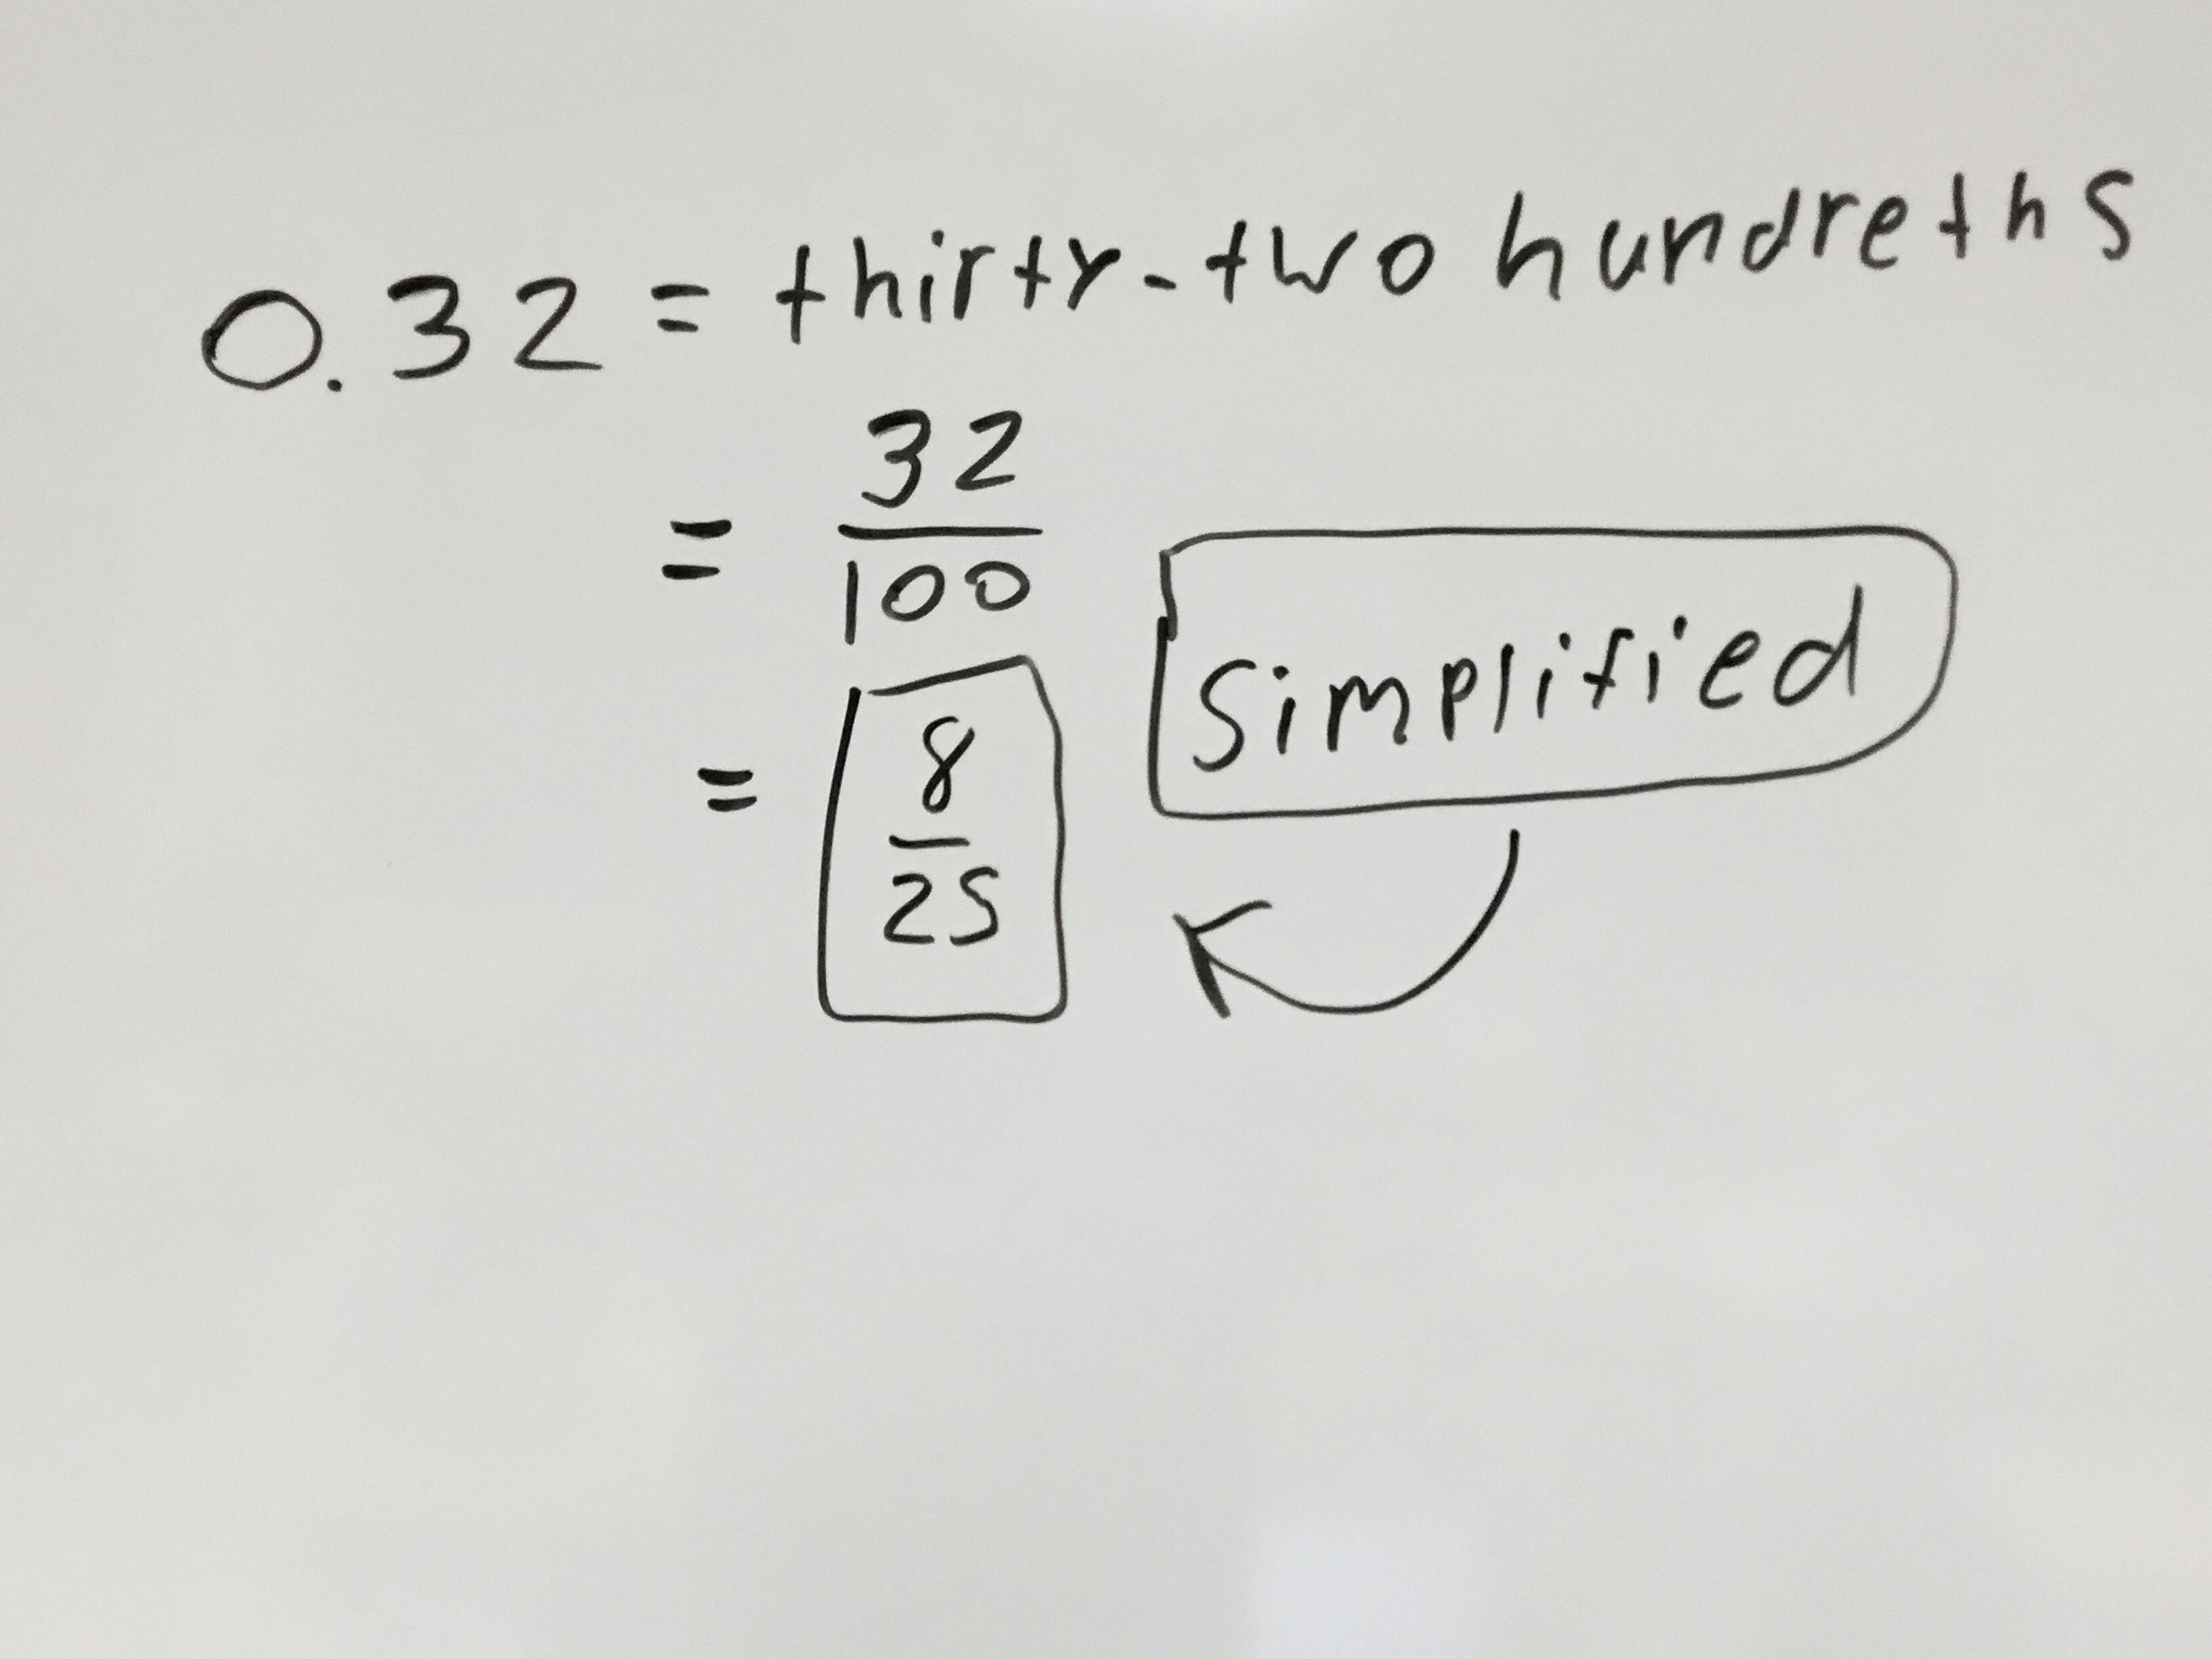 0.32 = thirty-two hundreths
= 32/100
simplified
= 8/25